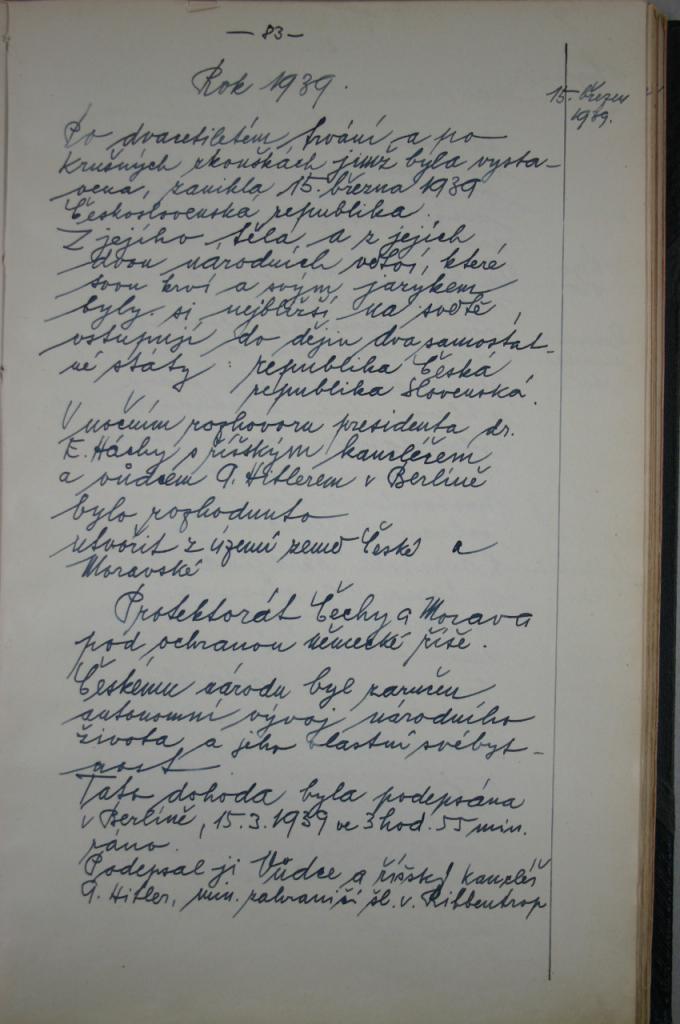 — 83 —
Rok 1939.
15. březen
1939.
Po dvacetiletém trvání a po
krušných zkouškách jimž byla vysta-
vena, zanikla 15. března 1939
Československá republika.
Z jejího těla a z jejích
dvou národních větví, které
svou krví a svým jazykem
byly si nejbližší na světě,
vstupují do dějin dva samostat-
né státy: republika Česká
republika Slovenská.
V nočním rozhovoru presidenta dr.
E. Háchy s říšským kancléřem
a vůdcem A. Hitlerem v Berlíně
bylo rozhodnuto
utvořit z území země České a
Moravské
Protektorát Čechy a Morava
pod ochranou německé říše.
Českému národu byl zaručen
autonomní vývoj národního
života a jeho vlastní svébyt-
nost
Tato dohoda byla podepsána
v Berlíně, 15.3.1939 ve 3 hod. 55 min.
ráno.
Podepsal ji Vůdce a říšský kancléř
A. Hitler, min. zahraničí šl. v. Ribbentrop